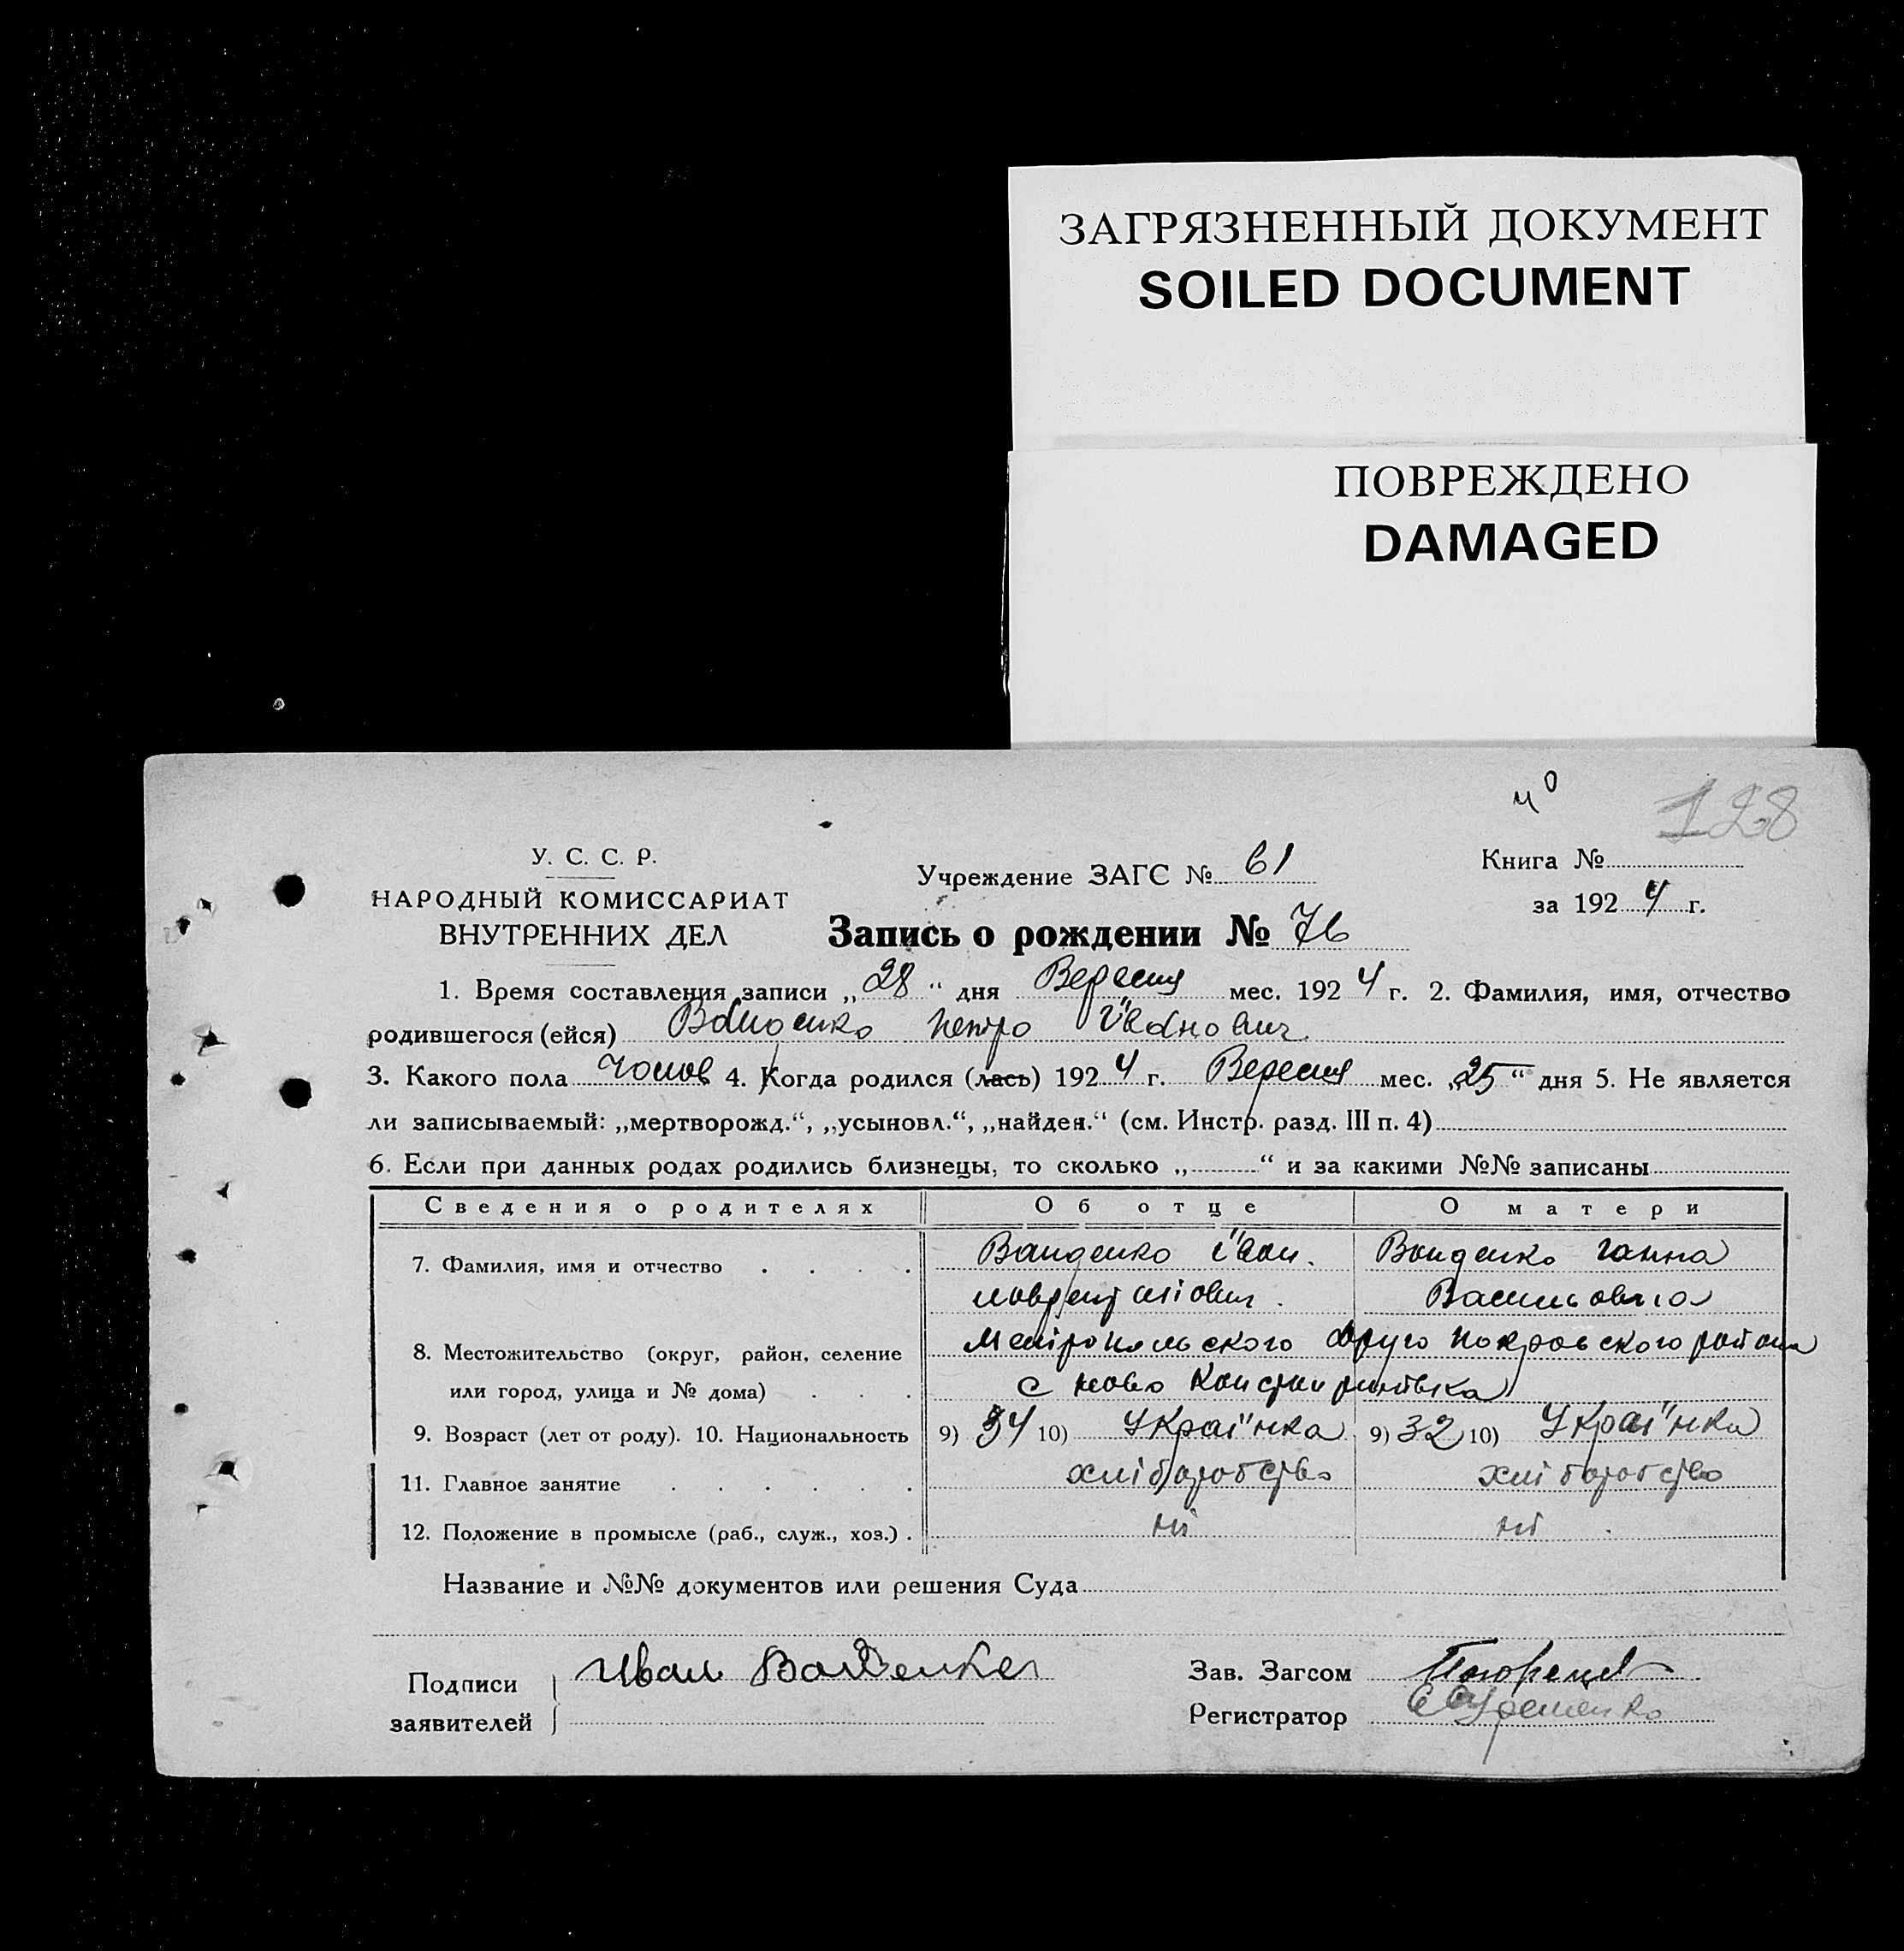 ЗАГРЯЗНЕННЫЙ ДОКУМЕНТ
SOILED DOCUMENT
ПОВРЕЖДЕНО
DAMAGED
128
У. С. С. Р.
НАРОДНЫЙ КОМИССАРИАТ
ВНУТРЕННИХ ДЕЛ
Учреждение ЗАГС № 61
Книга №
за 1924 г.
Запись о рождении № 76
1. Время составления записи „28“ дня Вересня мес. 1924 г. 2. Фамилия, имя, отчество
родившегося (ейся) Ванденко Петро Їванович
3. Какого пола Чолов 4. Когда родился (лась) 1924 г. Вересня мес. „25“ дня 5. Не является
ли записываемый: „мертворожд.“, „усыновл.“, „найден.“ (см. Инстр. разд. III п. 4)
6. Если при данных родах родились близнецы, то сколько „ “ и за какими №№ записаны
Сведения о родителях Об отце О матери
7. Фамилия, имя и отчество . . . . Ванденко Їван. Ванденко Ганна
Васильовна
8. Местожительство (округ, район, селение Меліропольского округо Покровского района
или город, улица и № дома) . . . с Ново Константинівка
9. Возраст (лет от роду). 10. Национальность 9) 34 10) Украї"нка 9) 32 10) Украї"нка
11. Главное занятие . . . . . . хліборобство хліборобство
12. Положение в промысле (раб., служ., хоз.) . ні ні
Название и №№ документов или решения Суда
Подписи Иван Зав. Загсом
заявителей Регистратор